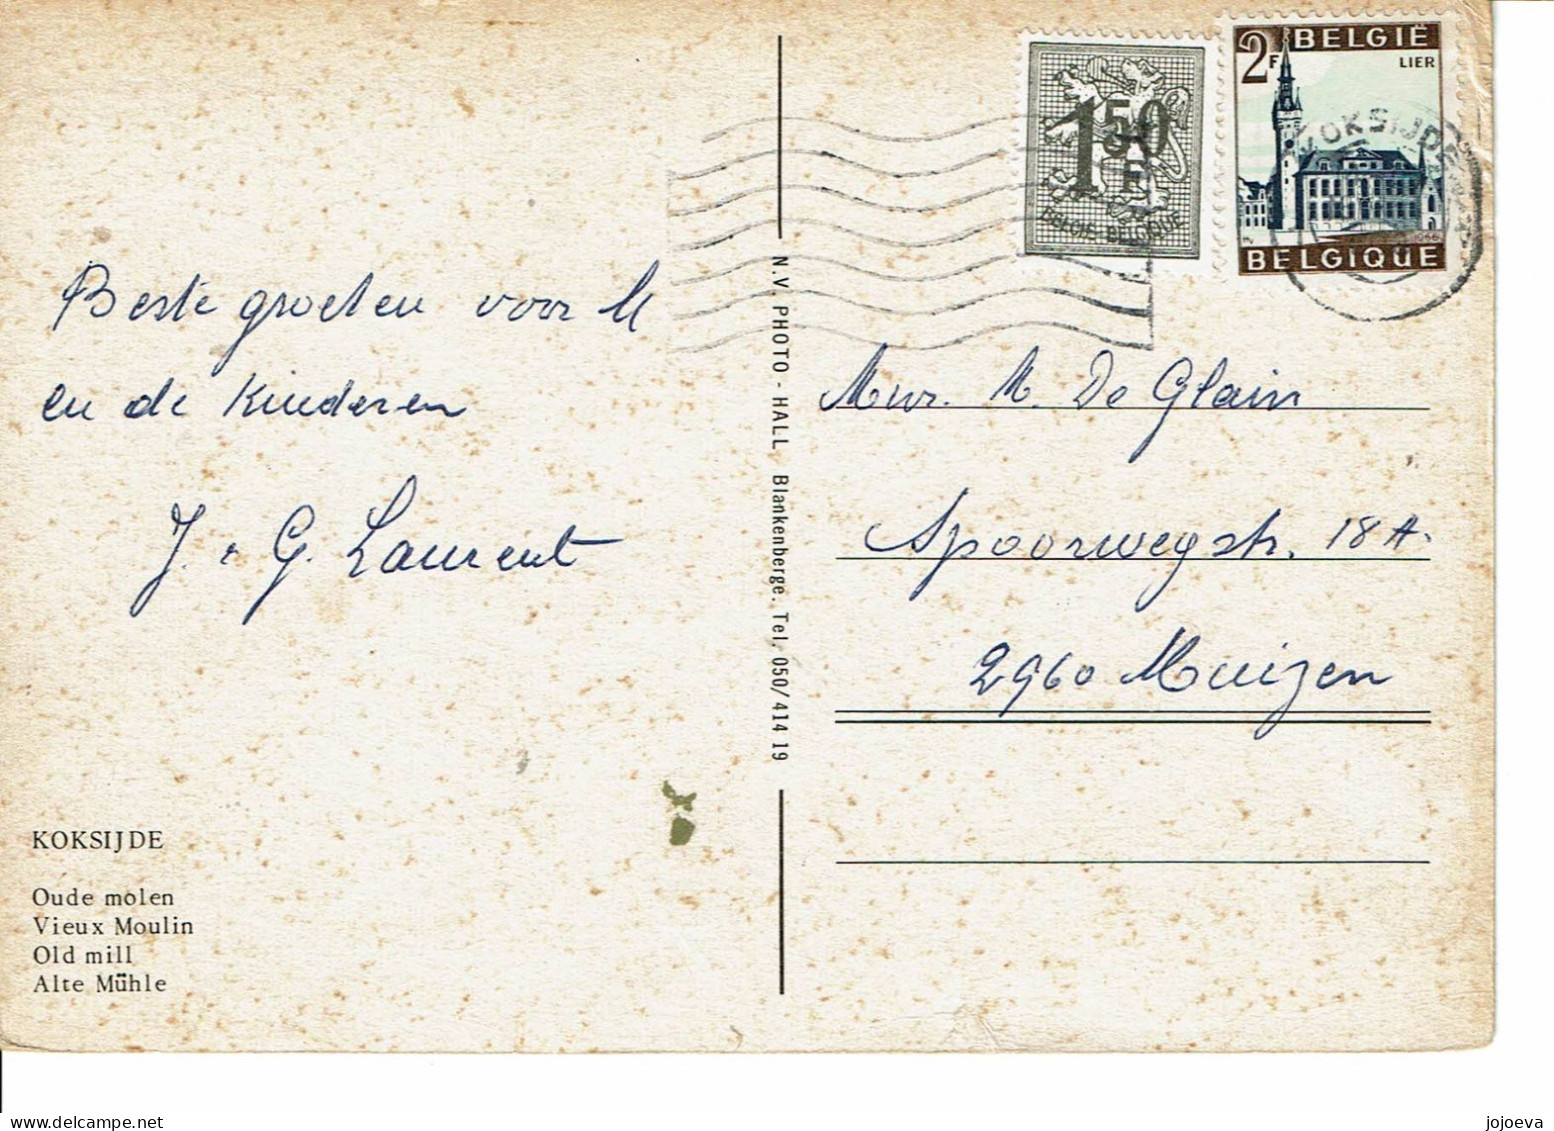 Beste groeten voor U
en de Kinderen
J. + G. Laurent
KOKSIJDE
Oude molen
Vieux Moulin
Old mill
Alte Mühle
N.V. PHOTO - HALL, Blankenberge. Tel, 050/414 19
1,50 F
BELGIE-BELGIQUE
2F BELGIË
LIER
1966
BELGIQUE
KOKSIJDE
Mvr. M. De Glain
Spoorwegstr. 18A.
2960 Muizen
jojoeva